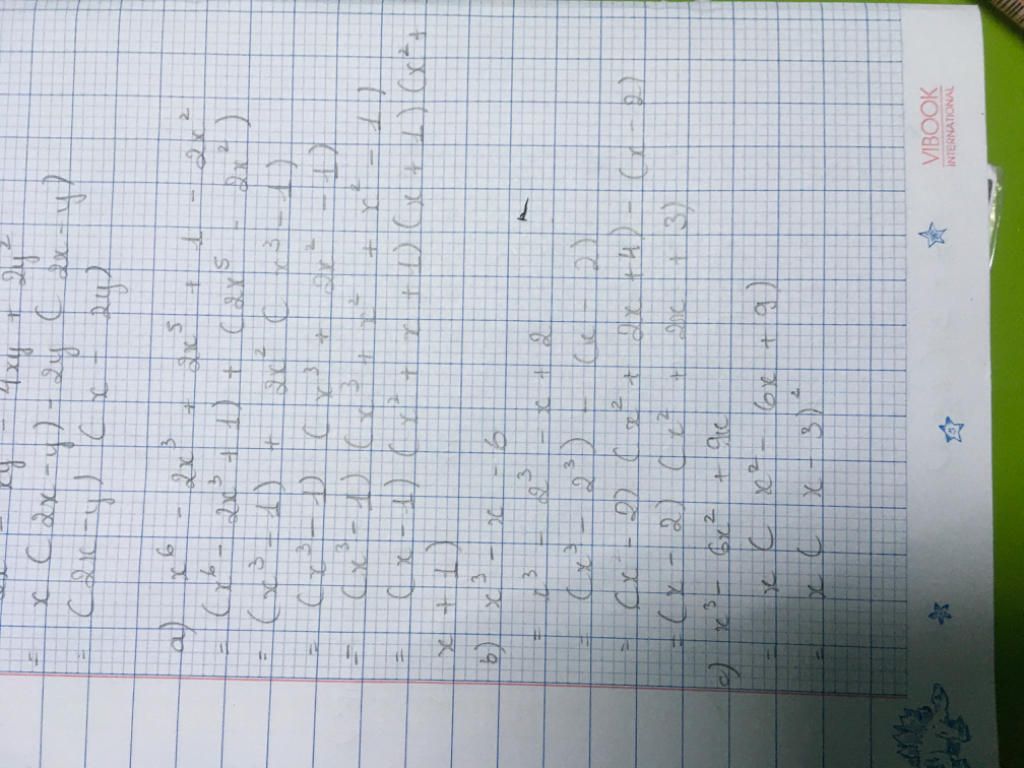 = x (2x - y) - 2y (2x - y)
= (2x - y) (x - 2y)
a) x⁶ - 2x³ + 2x⁵ + 1 - 2x²
= (x⁶ - 2x³ + 1) + (2x⁵ - 2x²)
= (x³ - 1) + 2x² (x³ - 1)
= (x³ - 1) (x³ + 2x² - 1)
= (x³ - 1) (x³ + x² + x² - 1)
= (x - 1) (x² + x + 1) (x + 1) (x² +
x + 1)
b) x³ - x - 6
= x³ - 2³ - x + 2
= (x³ - 2³) - (x - 2)
= (x - 2) (x² + 2x + 4) - (x - 2)
= (x - 2) (x² + 2x + 3)
c) x³ - 6x² + 9x
= x (x² - 6x + 9)
= x (x - 3)²
VIBOOK
INTERNATIONAL